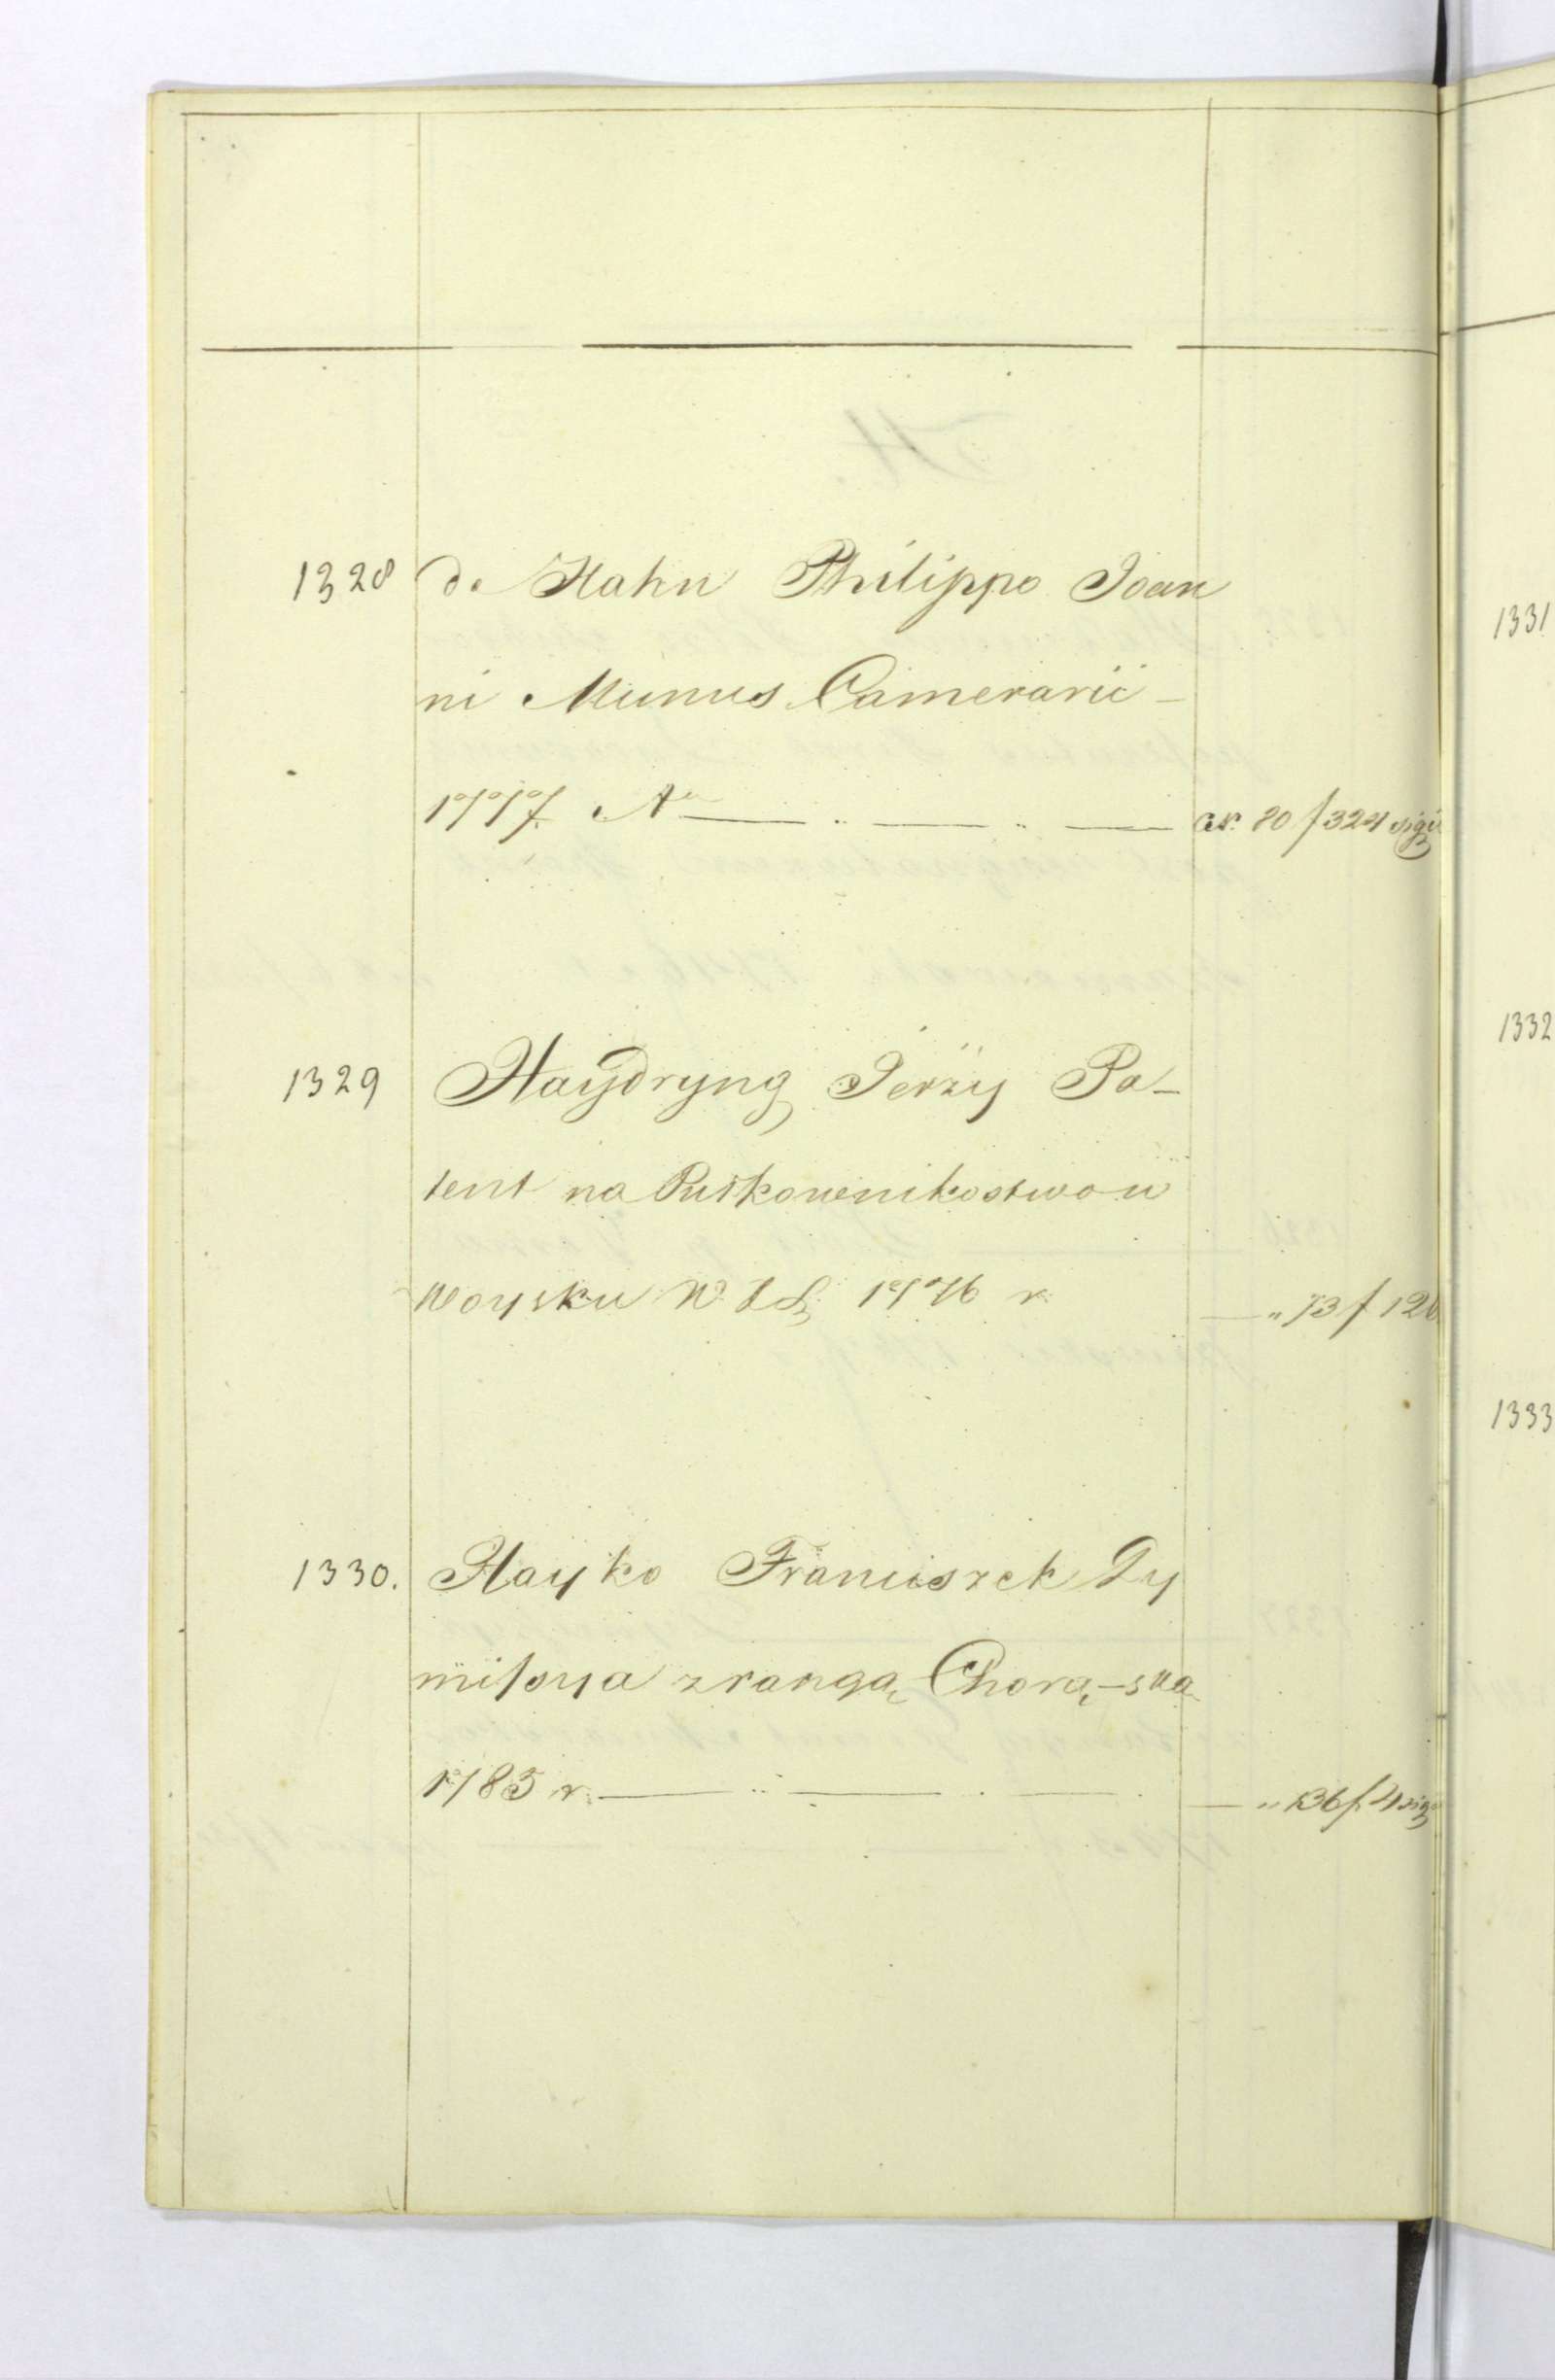 1328 de Hahn Philippo Joan
ni Munus Camerarii –
1777. Ao — .. — .. — Ar. 20 f 324 sig
1329 Haydryng Jerzy Pa–
tent na Pułkownikostwo w
Woysku W. X. L. 1776 r. — „ 73 f 126
1330. Hayko Franciszek Dy
missya z rangą Chorą–ska
1785 r. — .. — . — . — „ 136 f. 4 sig
1331
1332
1333